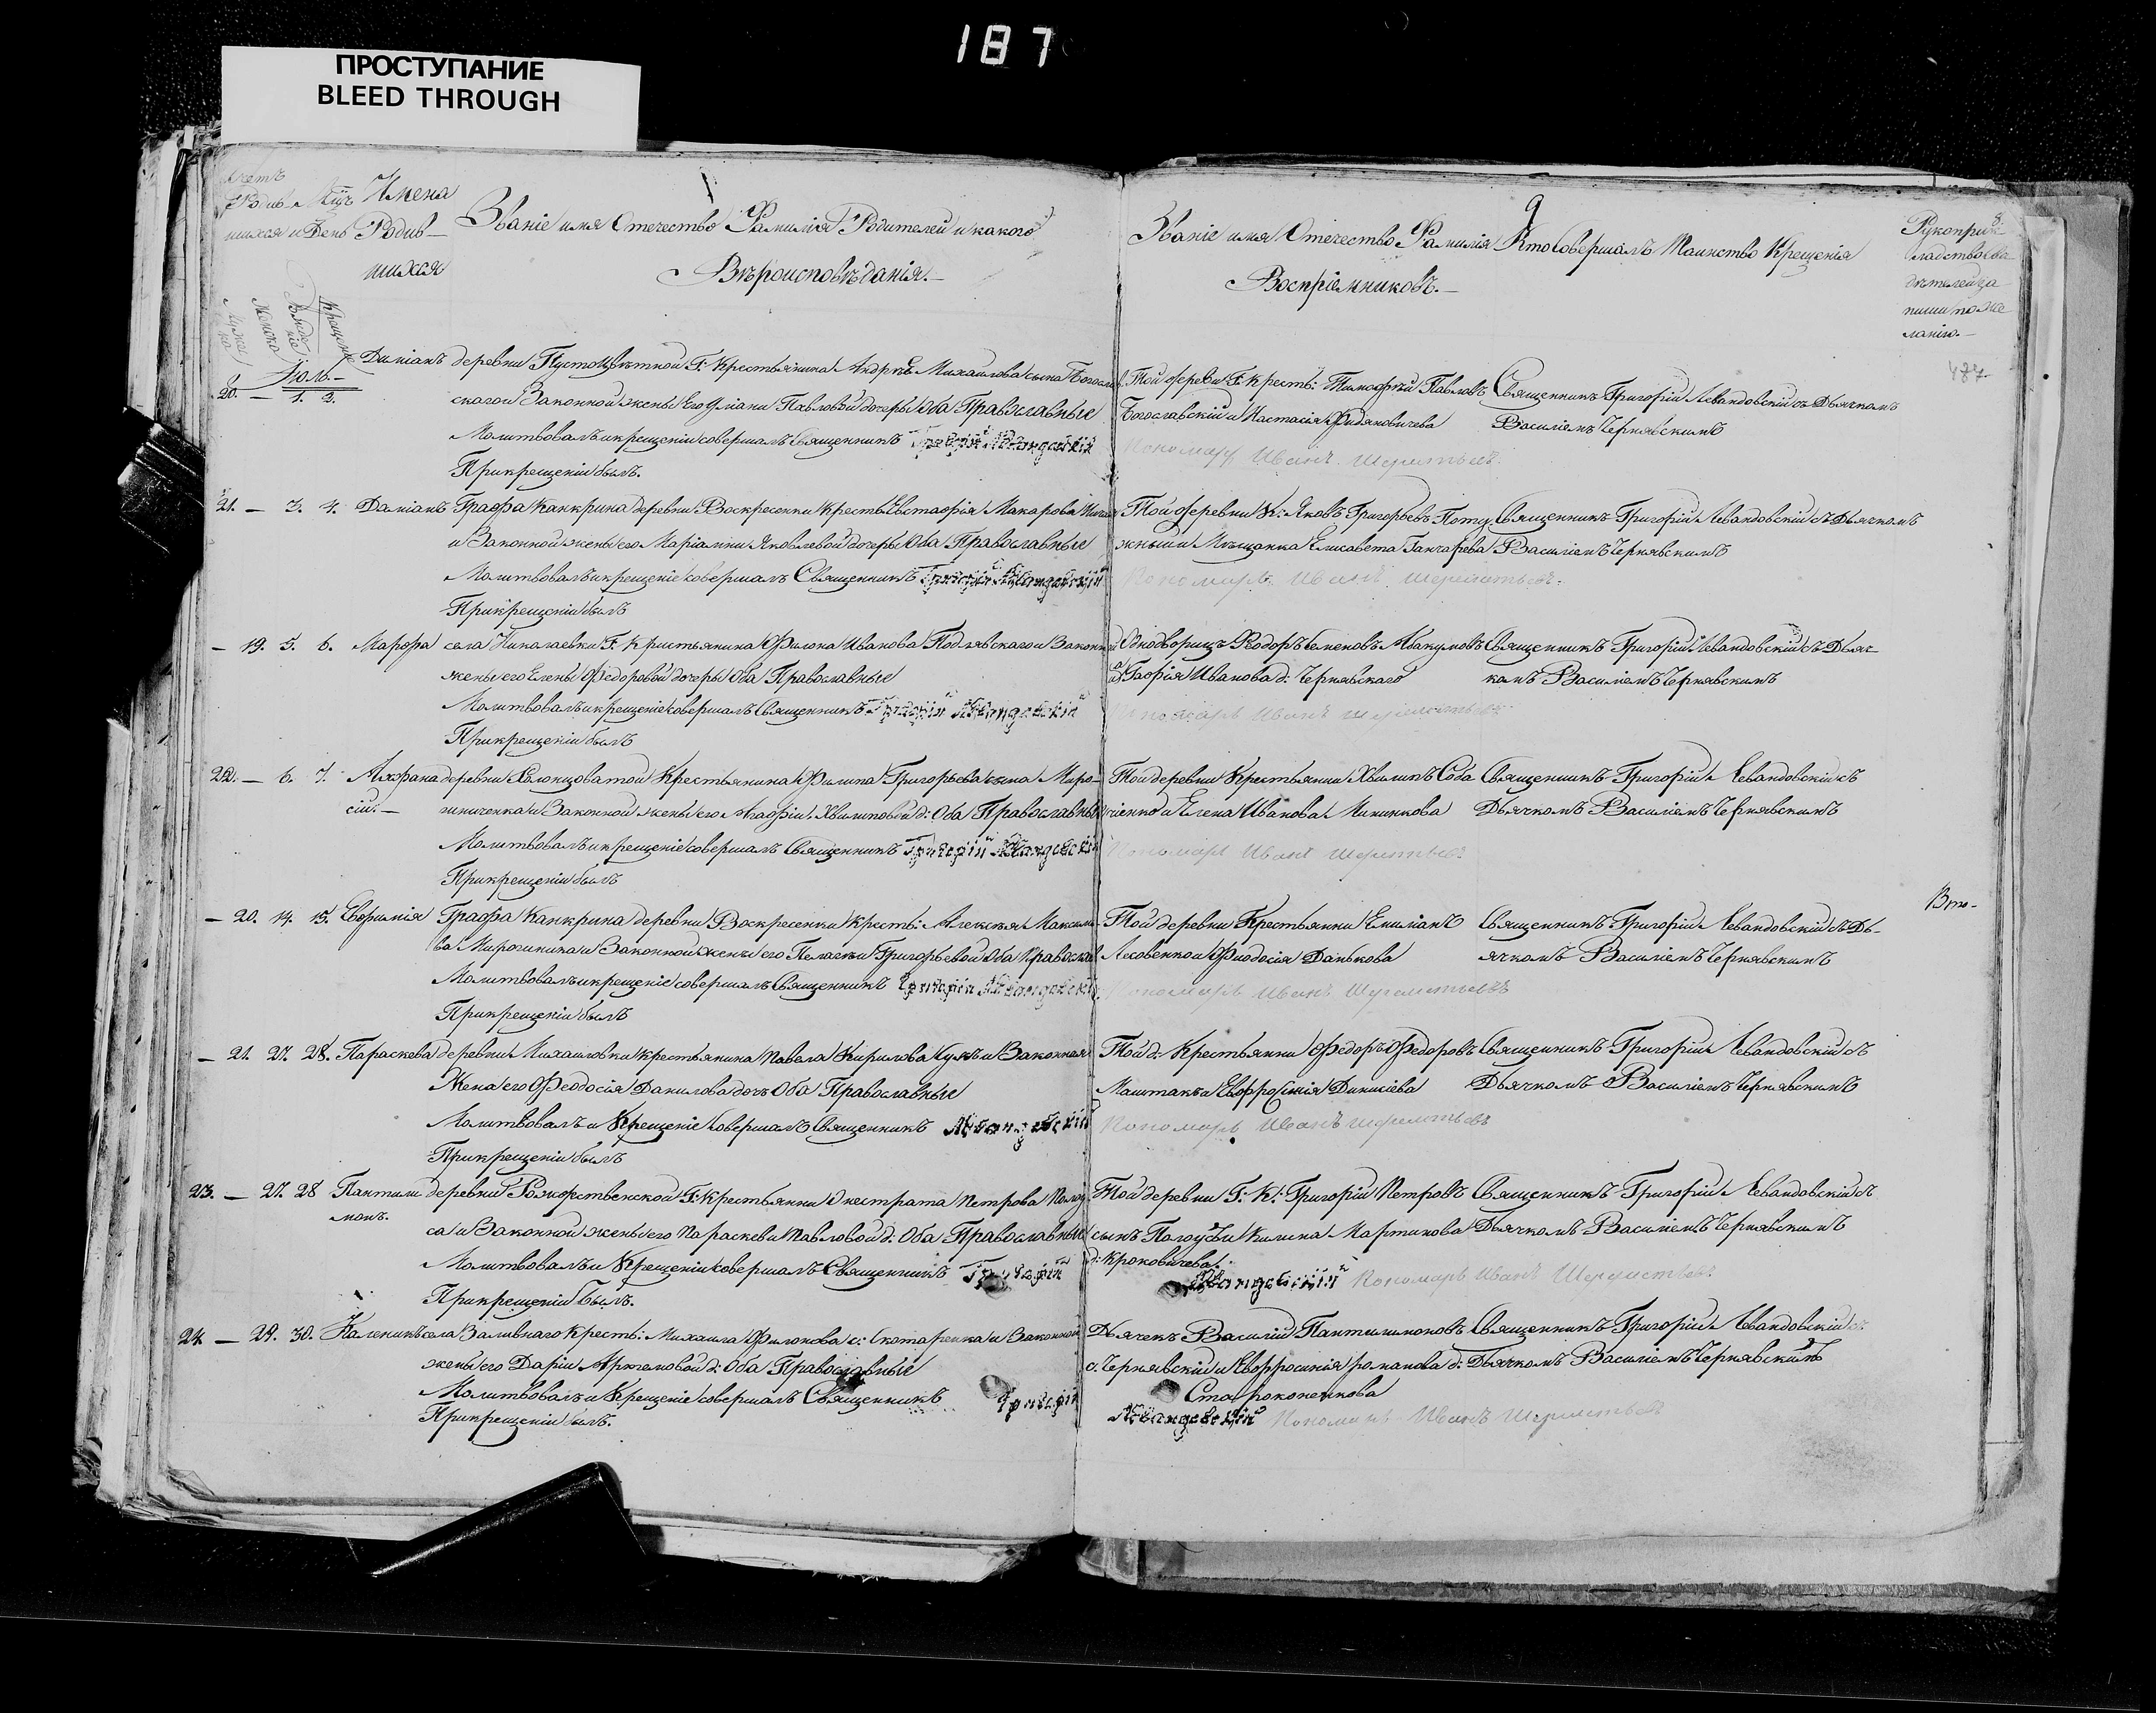 187
ПРОСТУПАНИЕ
BLEED THROUGH
Имена
Родив
шихся
Званіе имя Отечество Фамилія Родителей и какого
Вѣроисповѣданія.
9
Званіе имя Отечество Фамилія
Воспріемниковъ.
Кто Совершалъ Таинство Крещенія
Рукоприк
ладство сви
дѣтелей за
писи по же
ланію.
487
Іюль.
20. — 1. 2. Диміанъ деревни Пустоцвѣтной Г: Крестьянина Андрея Михаилова сына Богослав
скаго и Законной жены Его Павловой дочеры Оба Православные
Молитвовалъ и крещеніе совершалъ Священникъ Григорій Левандовскій
При крещеніи былъ.
Той деревни Г: Кресть: Тимофѣй Павловъ
Богославскій и Настасія
Пономарь Иванъ Шереметьевъ
Священникъ Григорій Левандовскій съ Дьячкомъ
Василіемъ Чернявскимъ
21. — 3. 4. Даміанъ Графа Канкрина деревни Воскресенки Кресть: Евстафія Макарова
и Законной жены его Маріамны Яковлевой дочеры Оба Православные
Молитвовалъ и крещеніе совершалъ Священникъ Григорій Левандовскій
При крещеніи былъ
Той деревни К: Яковъ Григорьевъ Поту
жный и Мѣщанка Елисавета Ганчарева
Пономарь Иванъ Шереметьевъ
Священникъ Григорій Левандовскій съ Дьячкомъ
Василіемъ Чернявскимъ
— 19. 5. 6. Марфа села Николаевки Г: Крестьянина Филона Иванова Подлявскаго и Законной
жены его Елены Федоровой дочеры Оба Православные
Молитвовалъ и крещеніе совершалъ Священникъ Григорій Левандовскій
При крещеніи былъ
Однодворецъ Феодоръ Семеновъ Абакумовъ
Иванова д: Чернявскаго
Пономарь Иванъ Шереметьевъ
Священникъ Григорій Левандовскій съ Дьяч
комъ Василіемъ Чернявскимъ
22. — 6. 7. Афана
сій.
деревни Крестьянина Филипа Григорьева сына Миро
шниченка и Законной жены его Агафіи Хвилиповой д: Оба Православные
Молитвовалъ и крещеніе совершалъ Священникъ Григорій Левандовскій
При крещеніи былъ
Той деревни Крестьянин Хвилипъ Соба
ченко и Елена Иванова
Пономарь Иванъ Шереметьевъ
Священникъ Григорій Левандовскій съ
Дьячкомъ Василіемъ Чернявскимъ
— 20. 14. 15. Евфимія Графа Канкрина деревни Воскресенки кресть: Алексѣя Максимо
ва и Законной жены его Пелагеи Григорьевой Оба Православ
Молитвовалъ и крещеніе совершалъ Священникъ Григорій Левандовскій
При крещеніи былъ
Той деревни Крестьянин Емиліанъ
Лесовенко и Феодосія Данькова
Пономарь Иванъ Шереметьевъ
Священникъ Григорій Левандовскій съ Дь
ячкомъ Василіемъ Чернявскимъ
Вто-
— 21. 27. 28. Параскева деревни Михаиловки Крестьянина Павела Кирилова Кукъ и Законная
Жена его Феодосія Данилова дочь Оба Православные
Молитвовалъ и Крещеніе совершалъ Священникъ Левандовскій
При крещеніи былъ
Той д: Крестьянин Федоръ Федоровъ
Маштакъ и Евфросинія
Пономарь Иванъ Шереметьевъ
Священникъ Григорій Левандовскій съ
Дьячкомъ Василіемъ Чернявскимъ
23. — 27. 28 Пантили
монъ.
деревни Рожественской Г: Крестьянин Петрова
са и Законной жены его Параскеви Павловой д: Оба Православные
Молитвовалъ и Крещеніе совершалъ Священникъ Григорій
При крещеніи былъ.
Той деревни Г: К: Григорій Петровъ
сынъ и Килина Мартинова
д: Кроковичева
Левандовскій Пономарь Иванъ Шереметьевъ
Священникъ Григорій Левандовскій съ
Дьячкомъ Василіемъ Чернявскимъ
24. — 29. 30. Каленикъ села Заливнаго Кресть: Михаила Филонова с: Скотаренка и Законной
жены его Даріи Артемовой д: Оба Православные
Молитвовалъ и Крещеніе совершалъ Священникъ Григорій
При крещеніи былъ.
Дьячекъ Василій Пантилимоновъ
с. Чернявскій и Евфросинія романова д:
Староконенкова
Левандовскій Пономарь Иванъ Шереметьевъ
Священникъ Григорій Левандовскій съ
Дьячкомъ Василіемъ Чернявскимъ